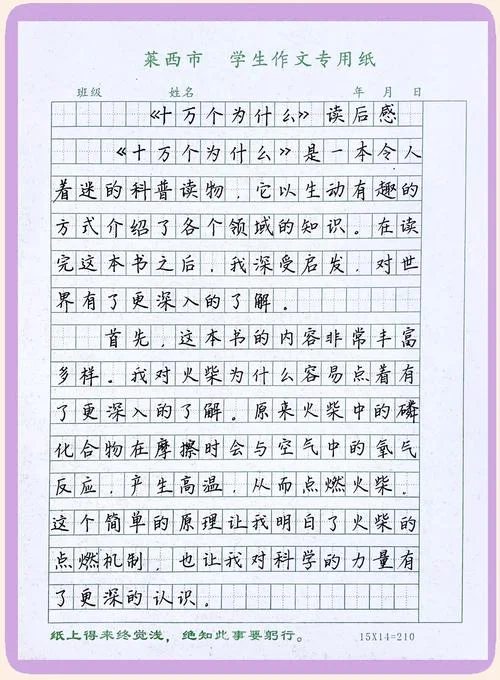 莱西市 学生作文专用纸
班级 姓名 年 月 日
《十万个为什么》读后感
《十万个为什么》是一本令人
着迷的科普读物，它以生动有趣的
方式介绍了各个领域的知识。在读
完这本书之后，我深受启发，对世
界有了更深入的了解。
首先，这本书的内容非常丰富
多样。我对火柴为什么容易点着有
了更深入的了解。原来火柴中的磷
化合物在摩擦时会与空气中的氧气
反应，产生高温，从而点燃火柴。
这个简单的原理让我明白了火柴的
点燃机制，也让我对科学的力量有
了更深的认识。
纸上得来终觉浅，绝知此事要躬行。 15X14=210